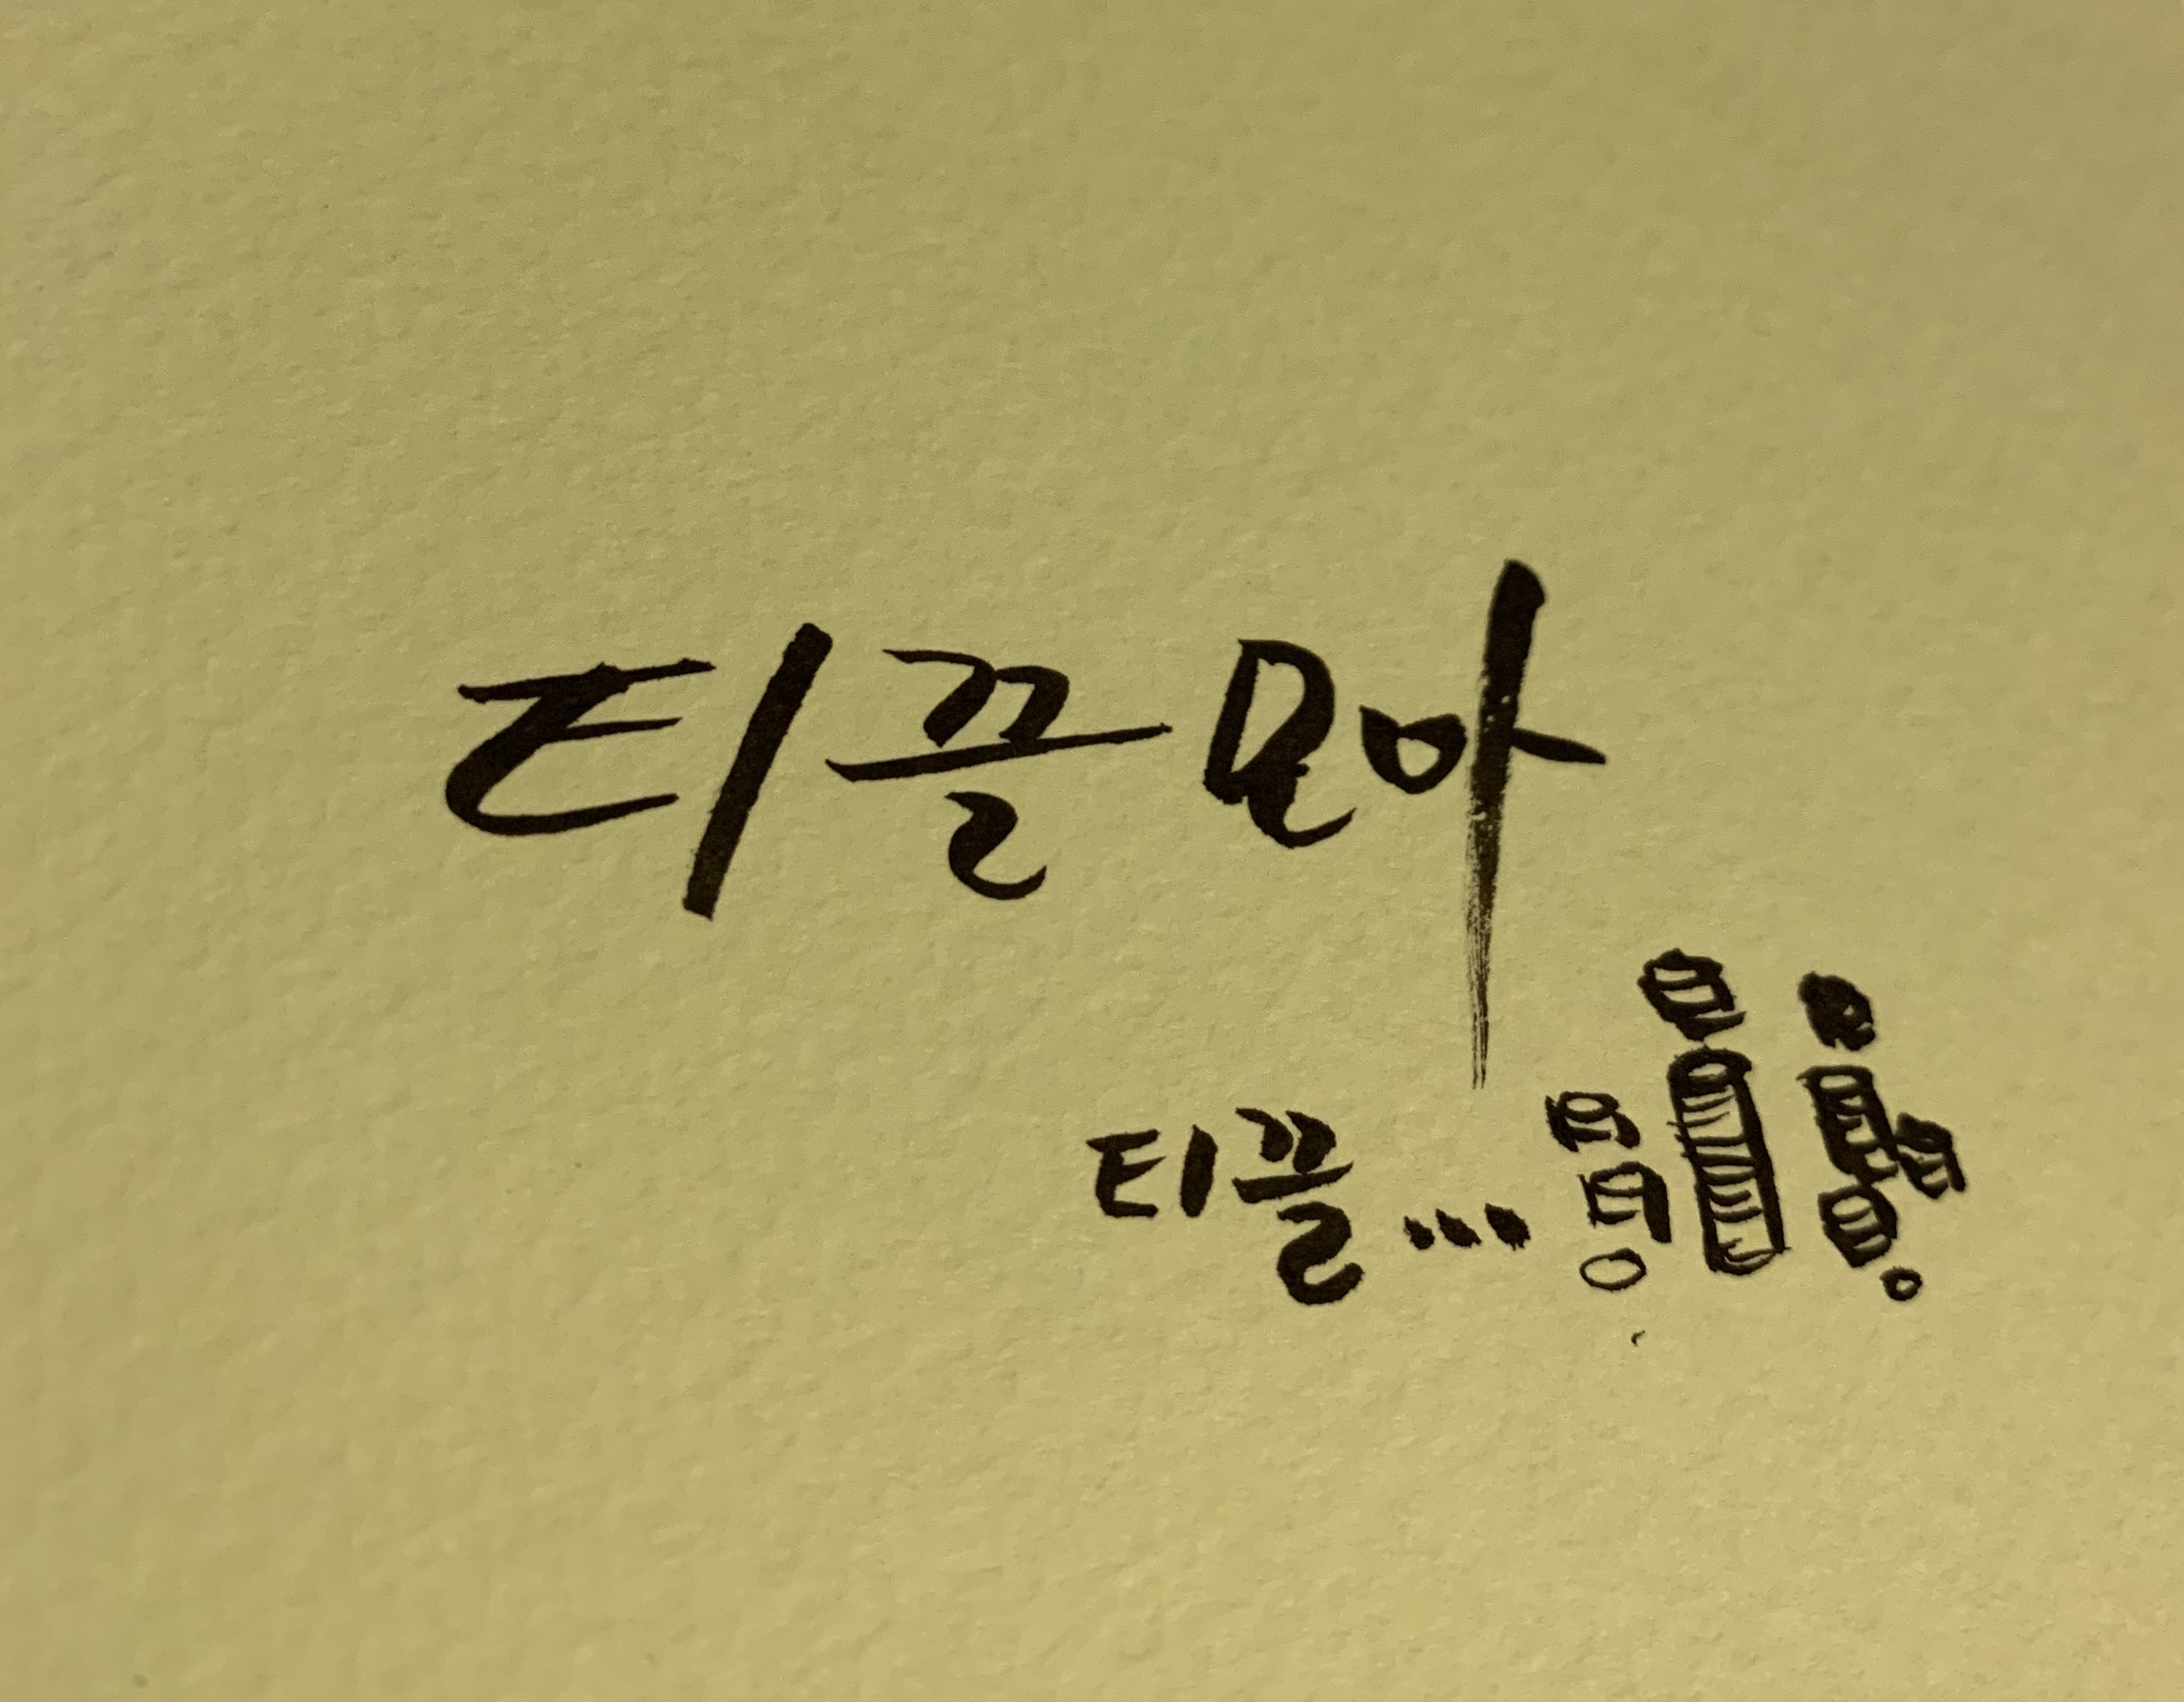 티끌모아
티끌...